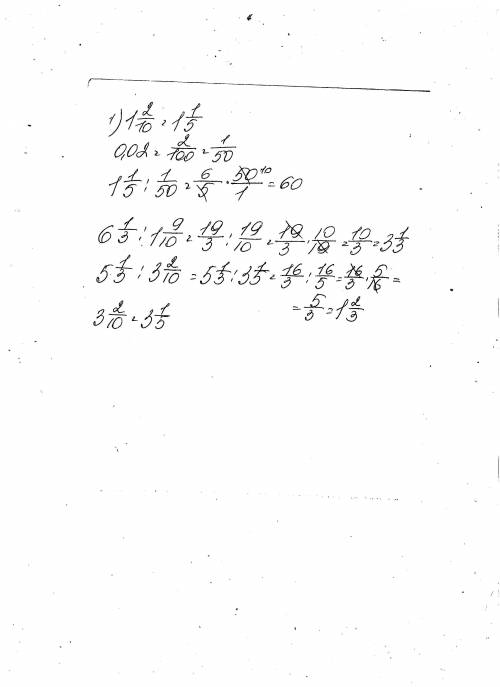 1) 1 2/10 = 1 1/5
0,02 = 2/100 = 1/50
1 1/5 : 1/50 = 6/5 · 50/1 10 = 60
6 1/3 : 1 9/10 = 19/3 : 19/10 = 19/3 · 10/19 = 10/3 = 3 1/3
5 1/3 : 3 2/10 = 5 1/3 : 3 1/5 = 16/3 : 16/5 = 16/3 · 5/16 =
= 5/3 = 1 2/3
3 2/10 = 3 1/5